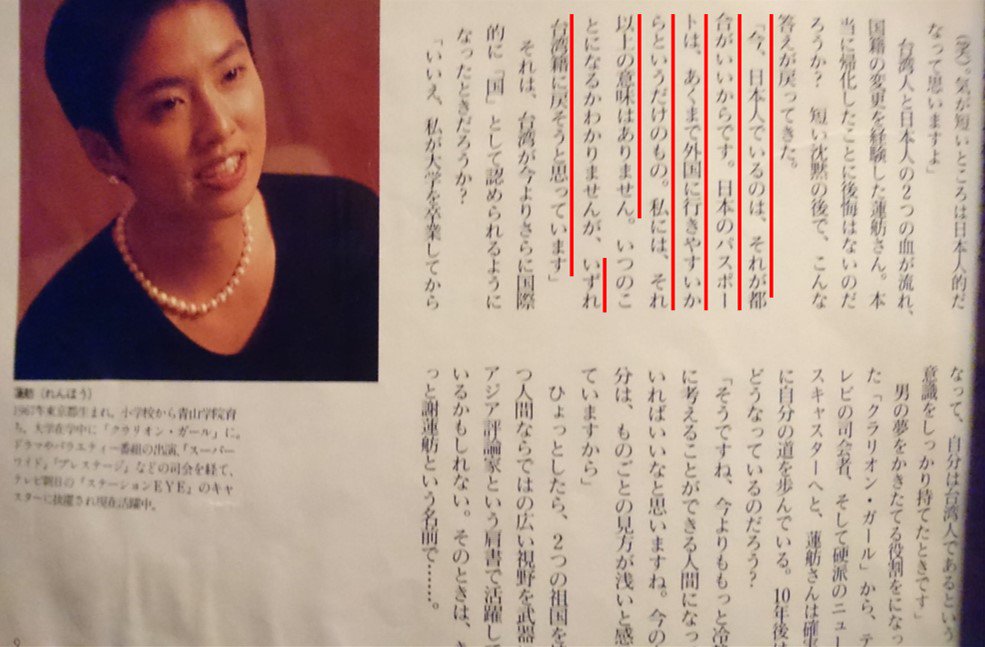 （笑）。気が短いところは日本人的だ
なって思いますよ」
台湾人と日本人の2つの血が流れ、
国籍の変更を経験した蓮舫さん。本
当に帰化したことに後悔はないのだ
ろうか？　短い沈黙の後で、こんな
答えが戻ってきた。
「今、日本人でいるのは、それが都
合がいいからです。日本のパスポー
トは、あくまで外国に行きやすいか
らというだけのもの。私には、それ
以上の意味はありません。いつのこ
とになるかわかりませんが、いずれ
台湾籍に戻そうと思っています」
それは、台湾が今よりさらに国際
的に「国」として認められるように
なったときだろうか？
「いいえ、私が大学を卒業してから
なって、自分は台湾人であるという
意識をしっかり持てたときです」
男の夢をかきたてる役割をになっ
た「クラリオン・ガール」から、テ
レビの司会者、そして硬派のニュー
スキャスターへと、蓮舫さんは確実
に自分の道を歩んでいる。10年後は
どうなっているのだろう？
「そうですね、今よりももっと冷
に考えることができる人間になっ
いればいいなと思いますね。今の
分は、ものごとの見方が浅いと感
ていますから」
ひょっとしたら、2つの祖国を
つ人間ならではの広い視野を武器
アジア評論家という肩書で活躍し
いるかもしれない。そのときは、
っと謝蓮舫という名前で……。
蓮舫（れんほう）
1967年東京都生まれ。小学校から青山学院育
ち。大学在学中に「クラリオン・ガール」に。
ドラマやバラエティー番組の出演、「スーパー
ワイド」「プレステージ」などの司会を経て、
テレビ朝日の『ステーションEYE』のキャ
スターに抜擢され現在活躍中。